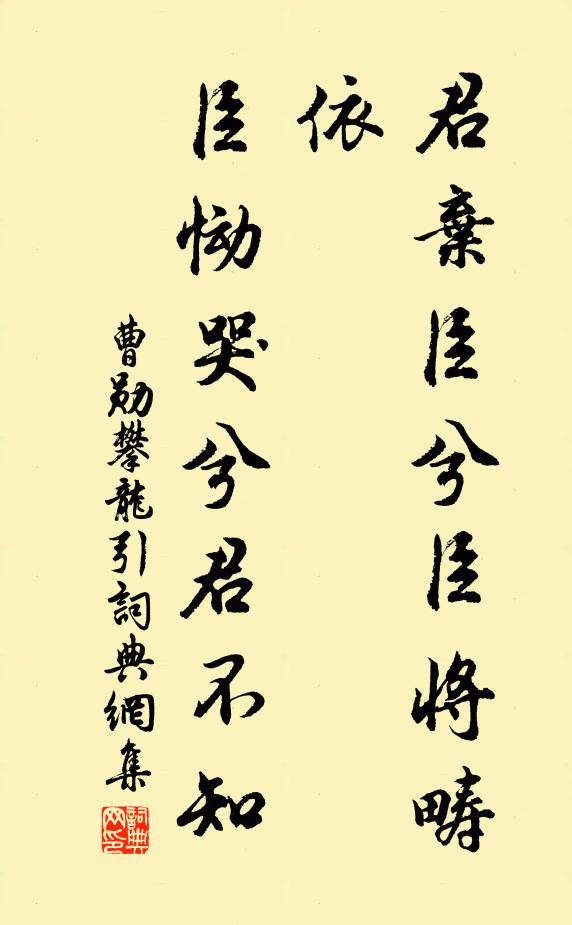 君棄臣兮臣將疇
依
臣慟哭兮君不知
曹勛攀龍引詞典網集
詞典網印